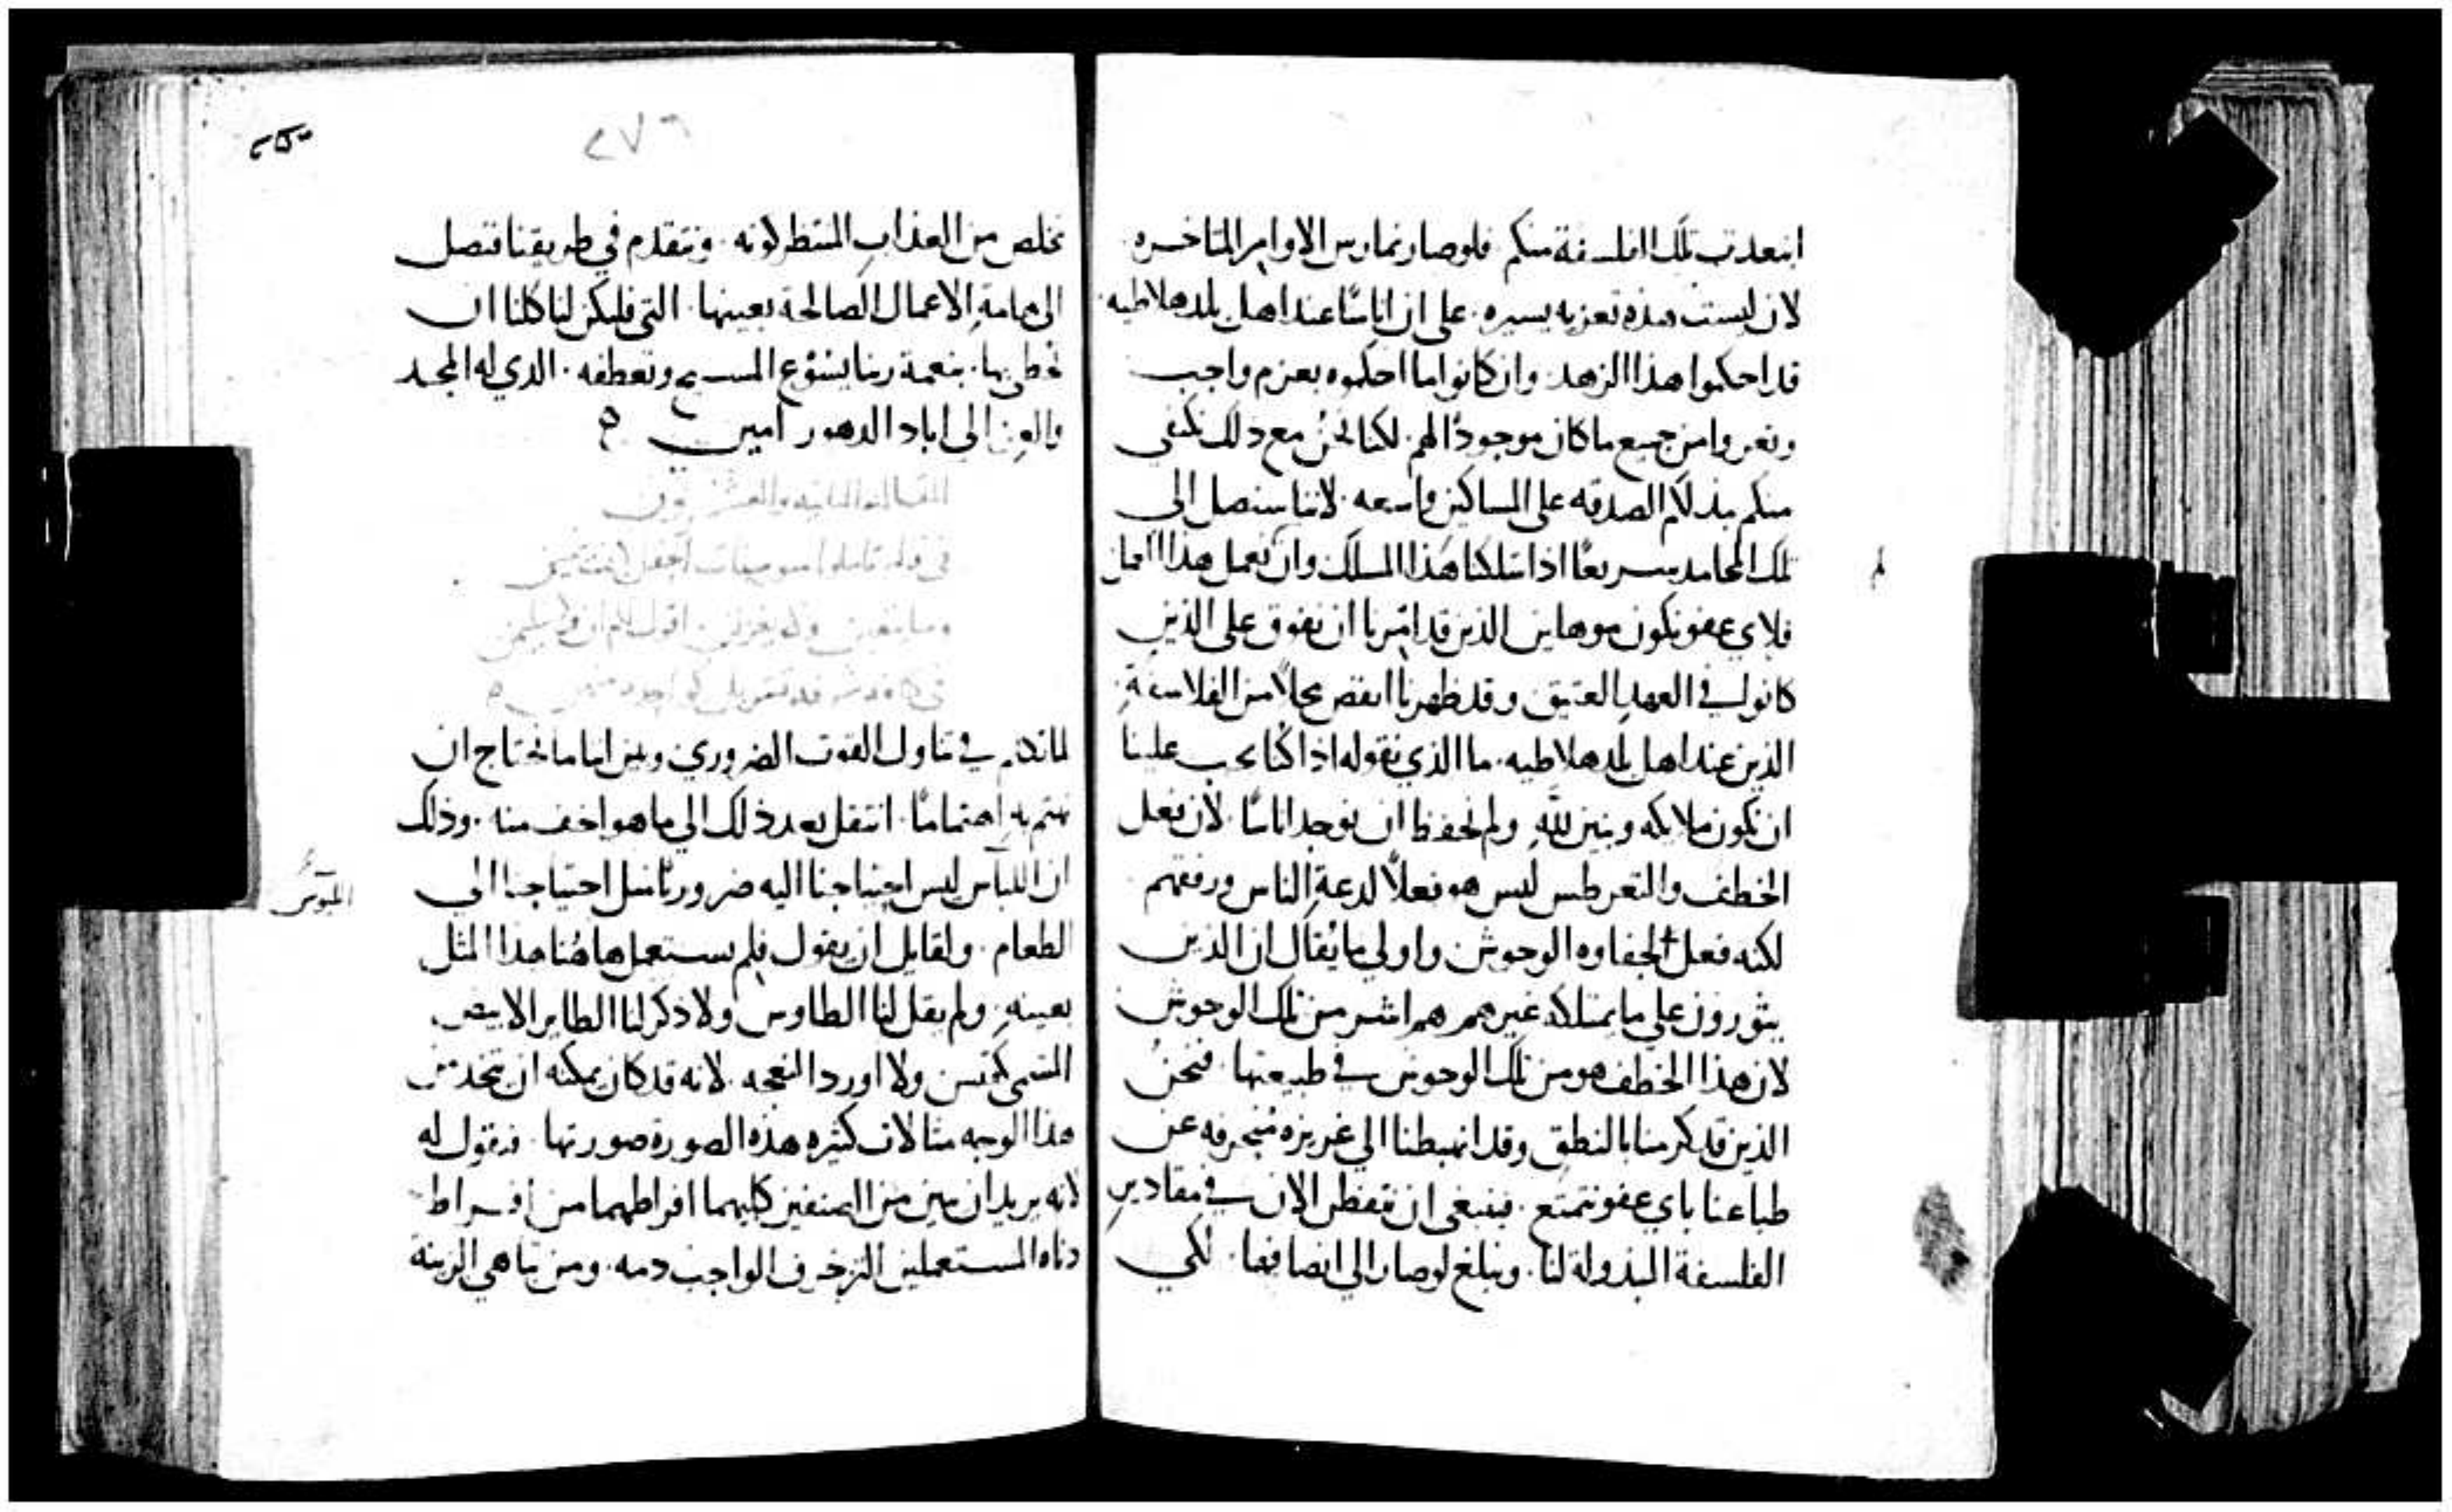 ابتعدت تلك الفلسفة منكم فلوصار نمارس الاوامر المتاخره
لان ليست هذه تعزيه يسيره. على ان اناسًا عند اهل بلد هلاطيه.
قد احكموا هذا الزهد. وان كانوا ما احكموه بعزم واجب
وتعروا من جميع ما كان موجودًا لهم. لكنا نحن مع ذلك نكتفي
منكم بذلكم الصدقه على المساكين واسعه. لاننا سنصل الى
تلك المحامد سريعًا اذا سلكنا هذا المسلك وان نعمل هذا العمل
فلاي عفو نكون موهلين الذين قد امرنا ان نفوق على الذين
كانوا في العهد العتيق وقد ظهرنا انقص محلاً من الفلاسفة
الذين عند اهل بلد هلاطيه. ما الذي نقوله اذا كنا يجب علينا
ان نكون ملايكه وبنين لله. ولم نحفظ ان نوجد اناسًا. لان فعل
الخطف والتغرطس ليس هو فعلاً لدعة الناس ورفقهم.
لكنه فعل لجفاوه الوحوش واولى ما يُقال ان الذين
يثورون على ما يمتلكه غيرهم هم اشر من تلك الوحوش
لان هذا الخطف هو من تلك الوحوش في طبيعتها. فنحن
الذين قد كرمنا بالنطق وقد انهبطنا الى غريزه منحرفه عن
طباعنا باي عفو نتمتع. فينبغي ان نتفطن الان في مقادير
الفلسفة المبذولة لنا. ونبلغ لوصار الى انصافها. لكي
٢٧٦
نخلص من العذاب المنتظر كونه. ونتقدم في طريقنا فنصل
الى هامة الاعمال الصالحة بعينها. التي فليكن لنا كلنا ان
نحظى بها. بنعمة ربنا يسوع المسيح وتعطفه. الذي له المجد
والعز الى اباد الدهور امين
المقاله الثانيه والعشرون
وما يتعبن ولا يغزلن واقول لكم ان ولا سليمن
لما تكلم في تناول القوت الضروري وبين اننا ما نحتاج ان
نهتم به اهتمامًا. انتقل بعد ذلك الى ما هو اخف منه. وذلك
ان اللباس ليس احتياجنا اليه ضروريًا مثل احتياجنا الى
الطعام. ولقايل ان يقول فلم يستعمل هاهُنا هذا المثل
بعينه. ولم يقل لنا الطاوس ولا ذكر لنا الطاير الابيض
المسمى ككنس ولا اورد النعجه. لانه قد كان يمكنه ان يتخذ من
هذا الوجه مثالات كثيره هذه الصورة صورتها. فنقول له
لانه يريد ان يبين من الصنفين كليهما افراطهما من افراط
دناه المستعملين الزخرف الواجب ذمه. ومن تباهي الزينة